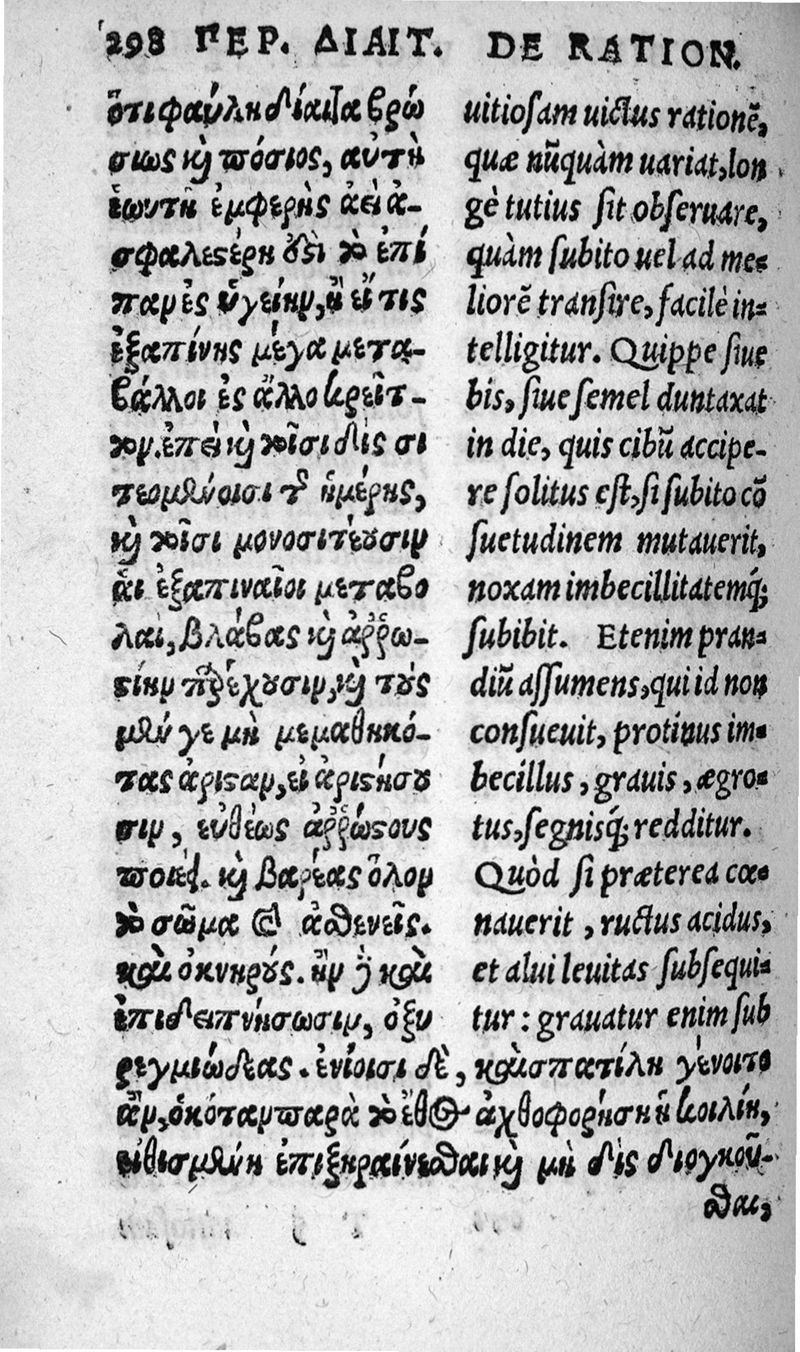 298 ΠΕΡ. ΔΙΑΙΤ. DE RATION.
ὅτι φαύλη δίαιτα βρώ
σιως καὶ πόσιος, αὐτὴ
ἑωυτῇ ἐμφερὴς ἀεὶ ἀ-
σφαλεστέρη ὅδὶ τὸ ἐπί
παν ἐς ὑγείην, ἢ εἴ τις
ἐξαπίνης μέγα μετα-
βάλλοι ἐς ἄλλο κρεῖτ-
τον. ἐπεὶ καὶ τοῖσι δὶς σι
τεομένοισι τῆς ἡμέρης,
καὶ τοῖσι μονοσιτέουσιν
αἱ ἐξαπιναῖοι μεταβο
λαὶ, βλάβας καὶ ἀῤῥω-
στίην παρέχουσιν, καὶ τοὺς
μὲν γε μὴ μεμαθηκό-
τας ἀριστᾶν, εἰ ἀριστήσου
σιν, εὐθέως ἀῤῥώστους
ποιεῖ. καὶ βαρέας ὅλον
τὸ σῶμα καὶ ἀσθενεῖς.
καὶ ὀκνηρούς. ἢν δὲ καὶ
ἐπιδειπνήσωσιν, ὀξυ
ρεγμιώδεας. ἐνίοισι δὲ, καὶ σπατίλη γένοιτο
ἂν, ὁκόταν παρὰ τὸ ἔθος ἀχθοφορήσῃ ἡ κοιλίη,
εἰθισμένη ἐπιξηραίνεσθαι καὶ μὴ δὶς διογκοῦ-
σθαι,
uitiosam uictus rationē,
quæ nūquàm uariat, lon
gè tutius sit obseruare,
quàm subito uel ad me-
liorē transire, facilè in-
telligitur. Quippe siue
bis, siue semel duntaxat
in die, quis cibū accipe-
re solitus est, si subito cō
suetudinem mutauerit,
noxam imbecillitatemq́;
subibit. Etenim pran-
diū assumens, qui id non
consueuit, protinus im-
becillus, grauis, ægro-
tus, segnisq́; redditur.
Quòd si præterea cœ-
nauerit, ructus acidus,
et alui leuitas subsequi-
tur: grauatur enim sub